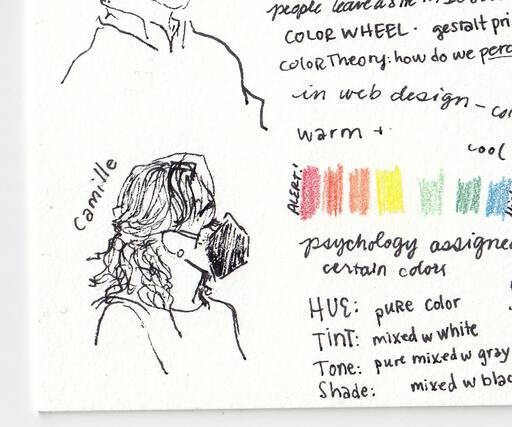 people leave a
COLOR WHEEL · gestalt pri
COLOR Theory: how do we perc
in web design -
warm +
cool
Camille
ALERT!
psychology assigned
certain colors
HUE: pure color
TINT: mixed w white
Tone: pure mixed w gray
Shade: mixed w blac